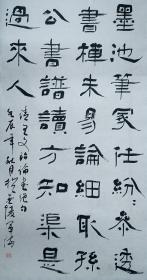 墨池筆冢任紛〻參透
書禪未易論細取孫
公書譜讀方知渠是
過來人
清王文治論書絕句
壬辰年秋月